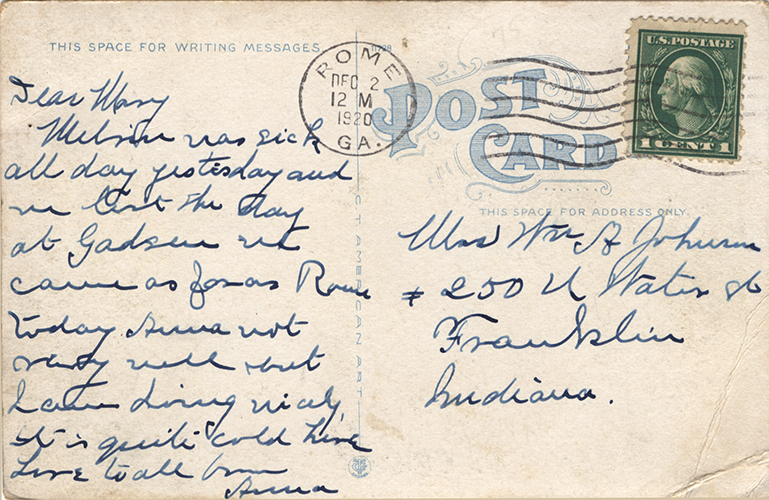 THIS SPACE FOR WRITING MESSAGES.
ROME
DEC 2
12 M
1920
GA.
POST
CARD
U.S. POSTAGE
1 CENT 1
THIS SPACE FOR ADDRESS ONLY.
Dear Mary
Melvin was sick
all day yesterday and
we lost the day
at Gadsen we
came as far as Rome
today Anna not
very well but
I am doing nicely
It is quite cold here
Love to all from
Anna
Mrs Wm A Johnson
# 250 N Water st
Franklin
Indiana.
CT AMERICAN ART